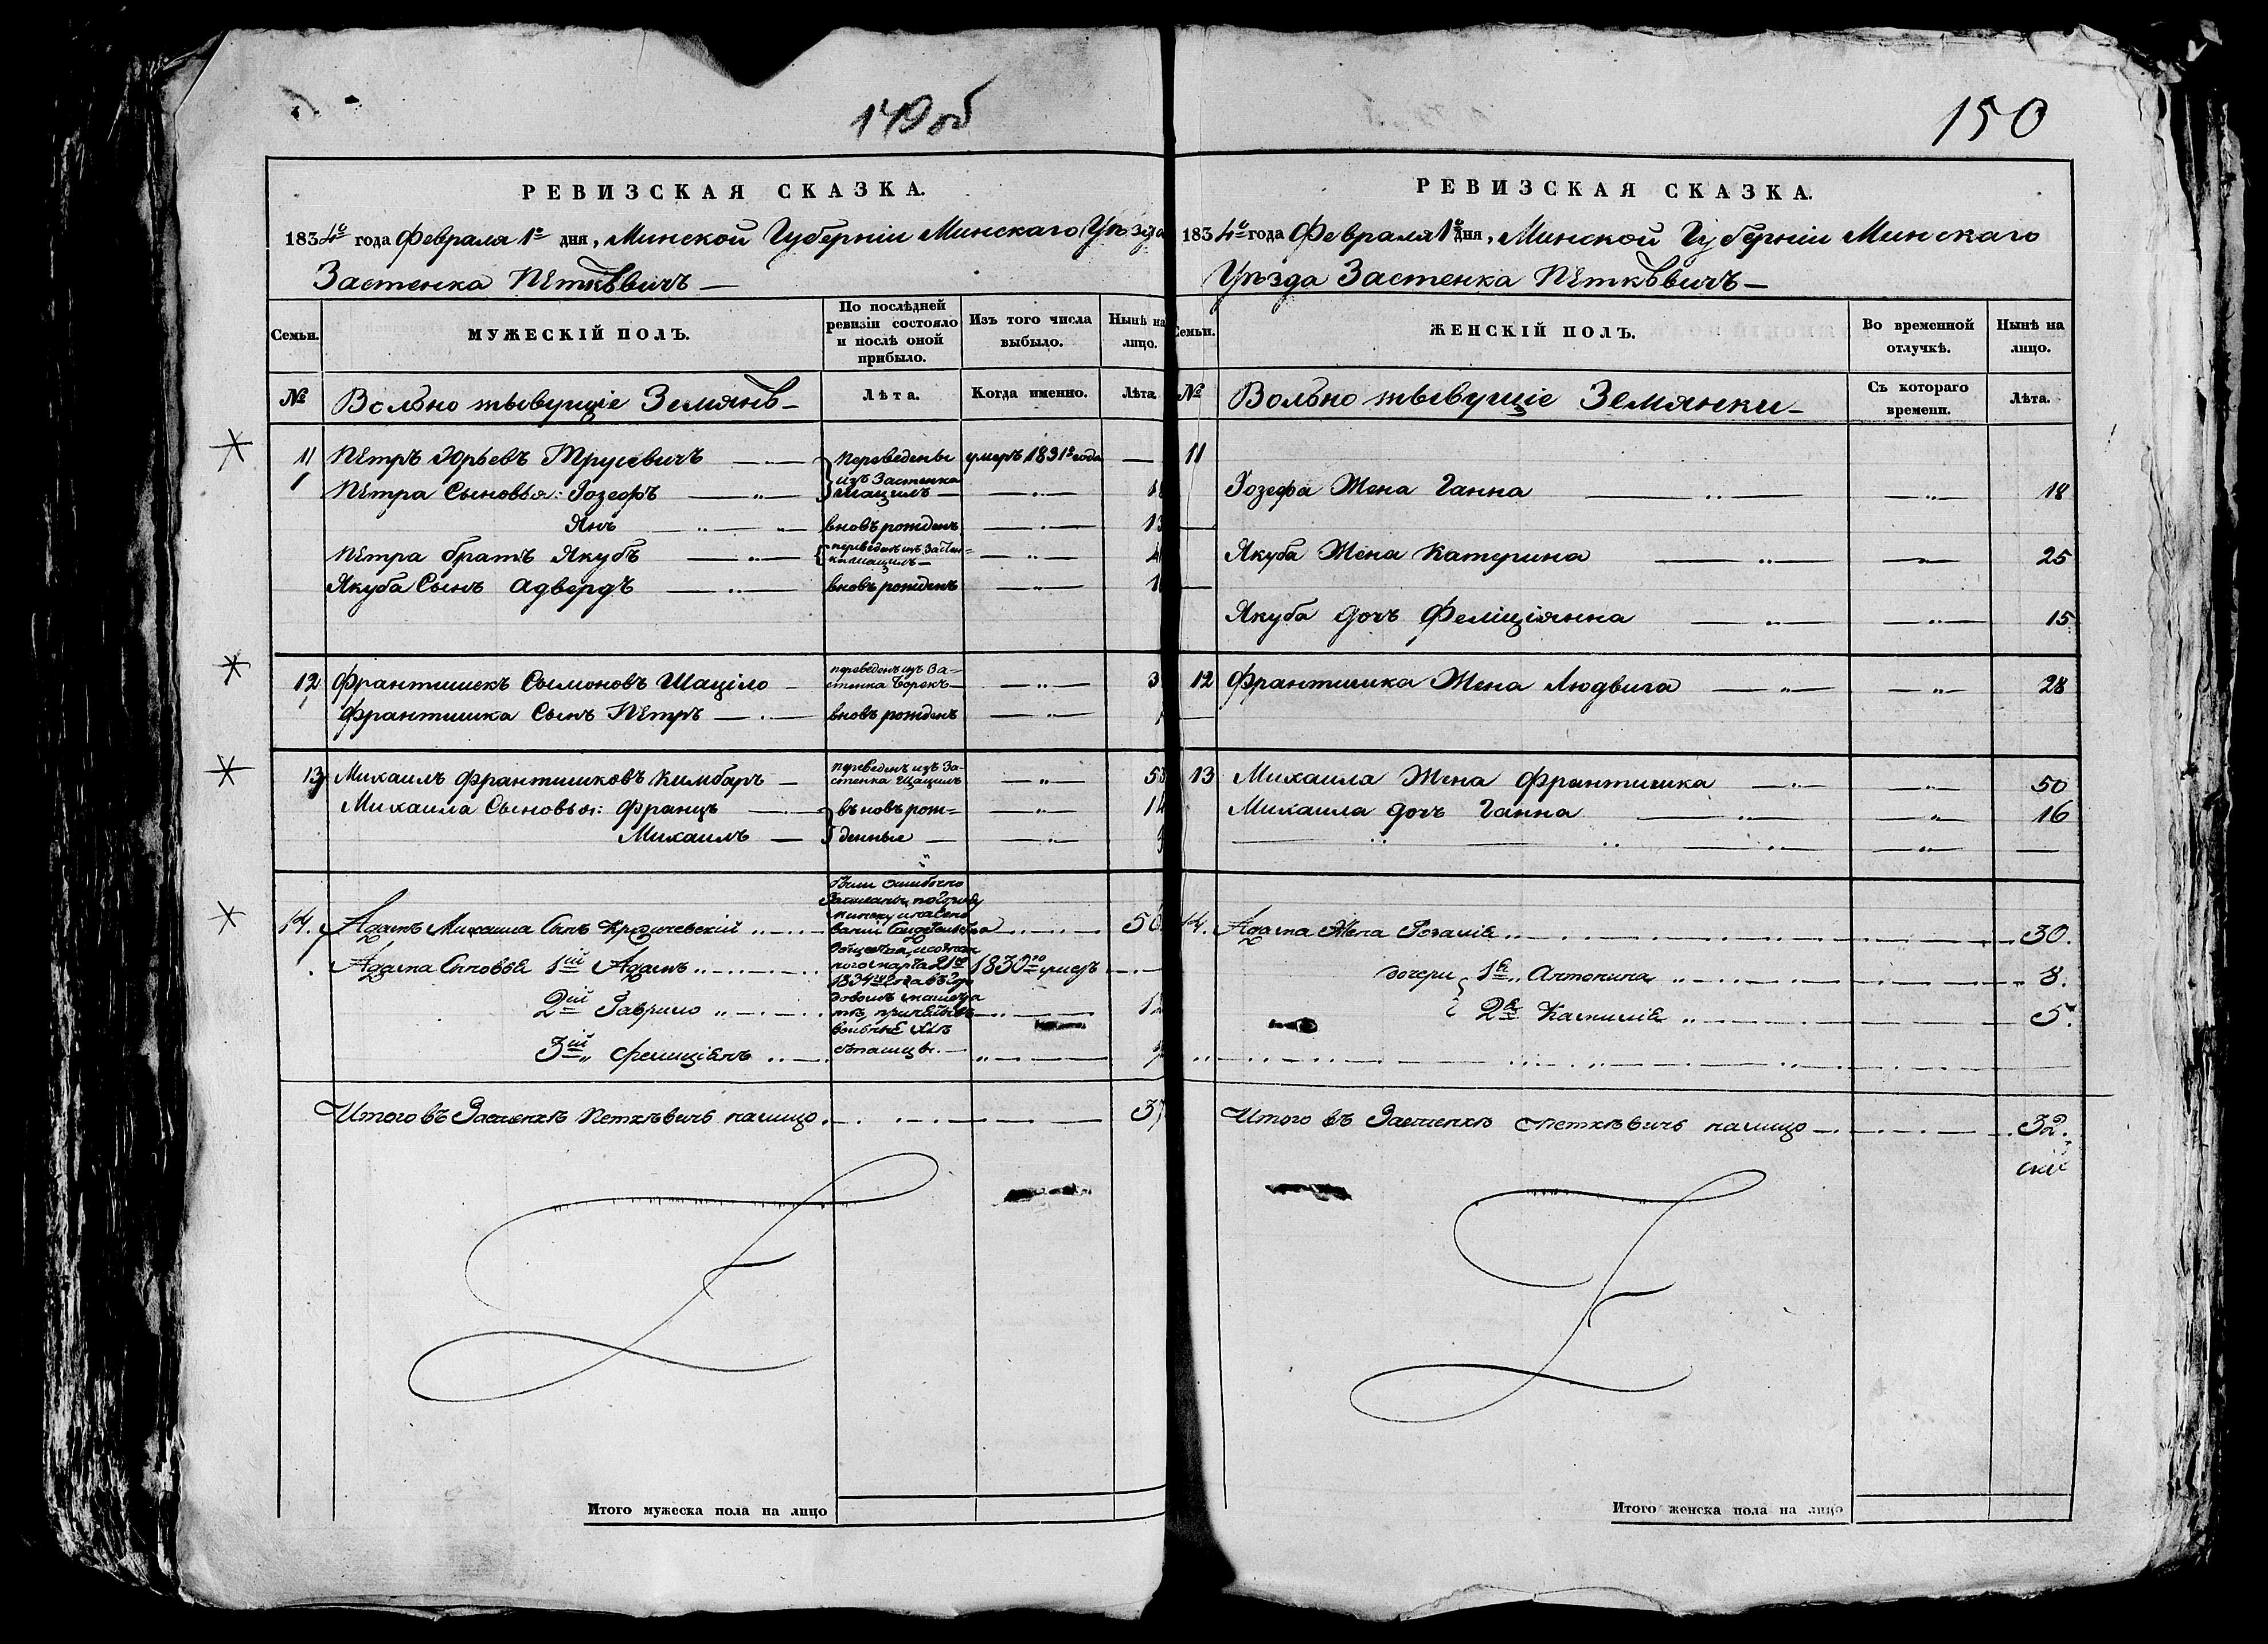 149 об
РЕВИЗСКАЯ СКАЗКА.
1834º года Февраля 1º дня, Минской Губерніи Минскаго Уѣзда
Застенка Пѣткѣвичъ —
Семьи.
МУЖЕСКІЙ ПОЛЪ.
По послѣдней ревизіи состояло и послѣ оной прибыло.
Изъ того числа выбыло.
Нынѣ на лицо.
№
Вольно живущіе Земянѣ —
Лѣта.
Когда именно.
Лѣта.
11 Пѣтръ Юрьевъ Трусевичъ — переведены умеръ 1831º года —
Пѣтра Сыновья: Іозефъ — изъ Застенка —
Янъ — вновъ рожденъ —
Пѣтра братъ Якубъ — переведенъ изъ Застен= —
Якуба Сынъ Адвердъ — вновъ рожденъ —
12 Франтишекъ Сымоновъ Шаціло — переведенъ изъ За=стенка Борекъ —
Франтишка Сынъ Пѣтръ — вновъ рожденъ —
13 Михаилъ Франтишковъ Кимбаръ — переведенъ изъ За=стенка —
Михаила Сыновья: Францъ — въновъ рож= —
Михаилъ — денные —
14. Адамъ Михаила Сынъ
Адама Сыновья 1ій Адамъ 1830го умеръ
2ій Гаврило
3ій Фелиціянъ
Итого въ Застенкѣ Петкѣвичъ налицо 37
Итого мужеска пола на лицо
150
РЕВИЗСКАЯ СКАЗКА.
1834º года Февраля 1º дня, Минской Губерніи Минскаго
Уѣзда Застенка Пѣткѣвичъ —
Семьи.
ЖЕНСКІЙ ПОЛЪ.
Во временной отлучкѣ.
Нынѣ на лицо.
№
Вольно живущіе Земянки —
Съ котораго времени.
Лѣта.
11
Іозефа Жена Ганна — 18
Якуба Жена Катерина — 25
Якуба дочъ Феліціянна — 15
12 Франтишка Жена Людвига — 28
13 Михаила Жена Франтишка — 50
Михаила дочъ Ганна — 16
14. Адама Жена Розалія 30.
дочери 1я Антонина 8.
2я Камилія 5.
Итого въ Застенкѣ Петкѣвичъ налицо 32.
Итого женска пола на лицо